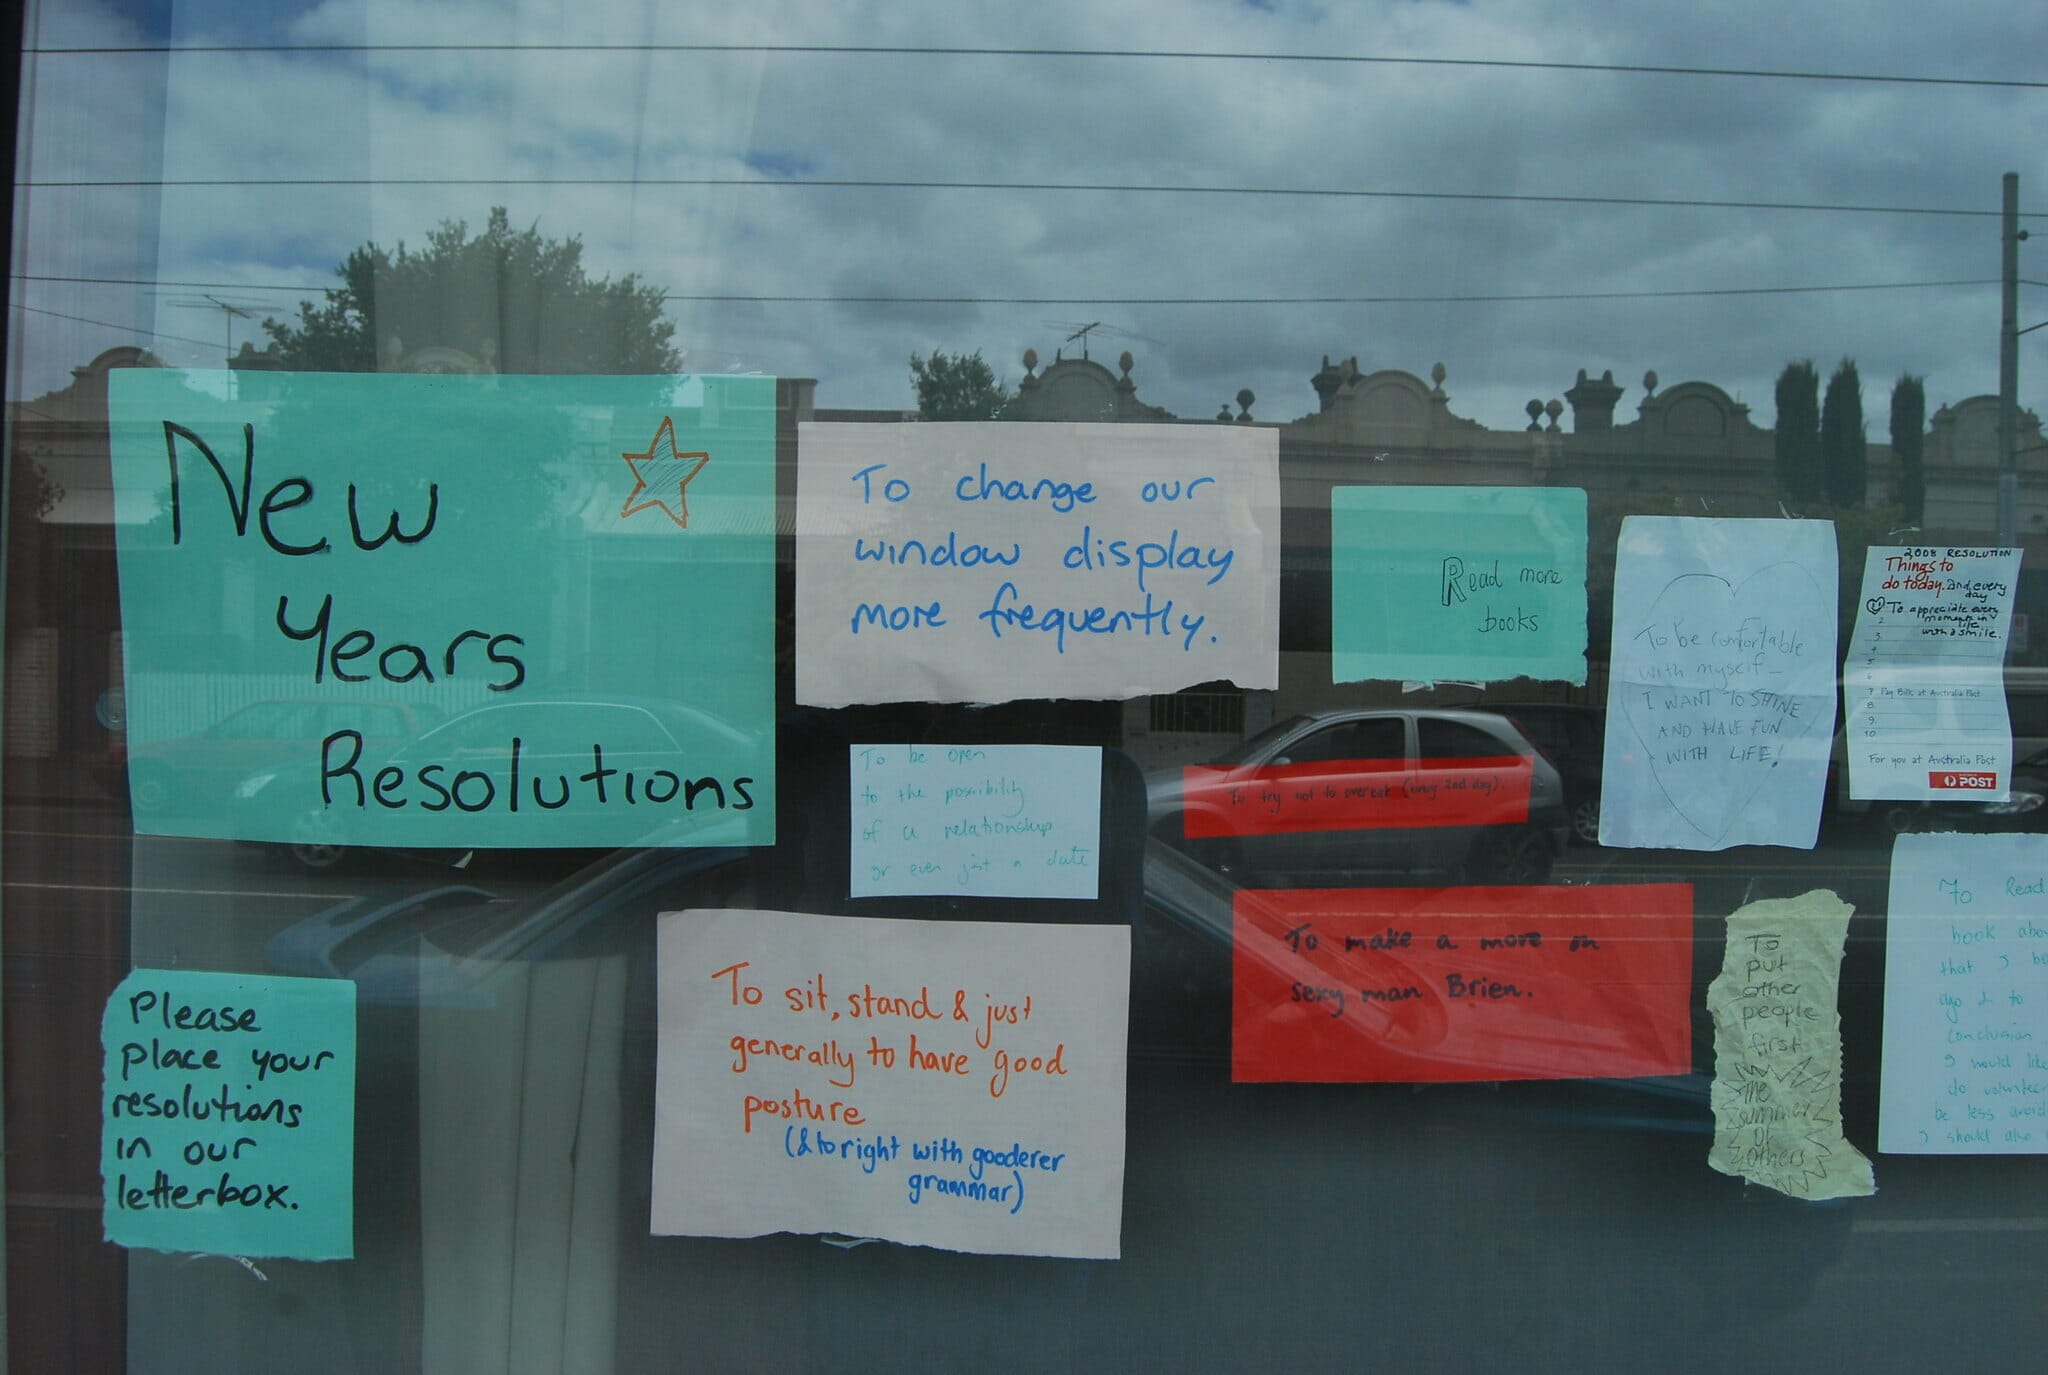 New
Years
Resolutions
To change our
window display
more frequently.
Read more
books
To be comfortable
with myself -
I WANT TO SHINE
AND HAVE FUN
WITH LIFE!
2008 RESOLUTION
Things to
do today. and every
day
1 To appreciate every
moment in
life
with a smile.
2
3
4
5
6
7 Pay Bills at Australia Post
8
9
10
For you at Australia Post
POST
To be open
to the possibility
of a relationship
or even just a date
To try not to overeat (every 2nd day).
Please
place your
resolutions
in our
letterbox.
To sit, stand & just
generally to have good
posture
(& to right with gooderer
grammar)
To make a move on
sexy man Brien.
To
put
other
people
first
The
summer
of
others
To Read
book abo
that I
ago & to
conclusion
I would like
do volunteer
be less
I should also